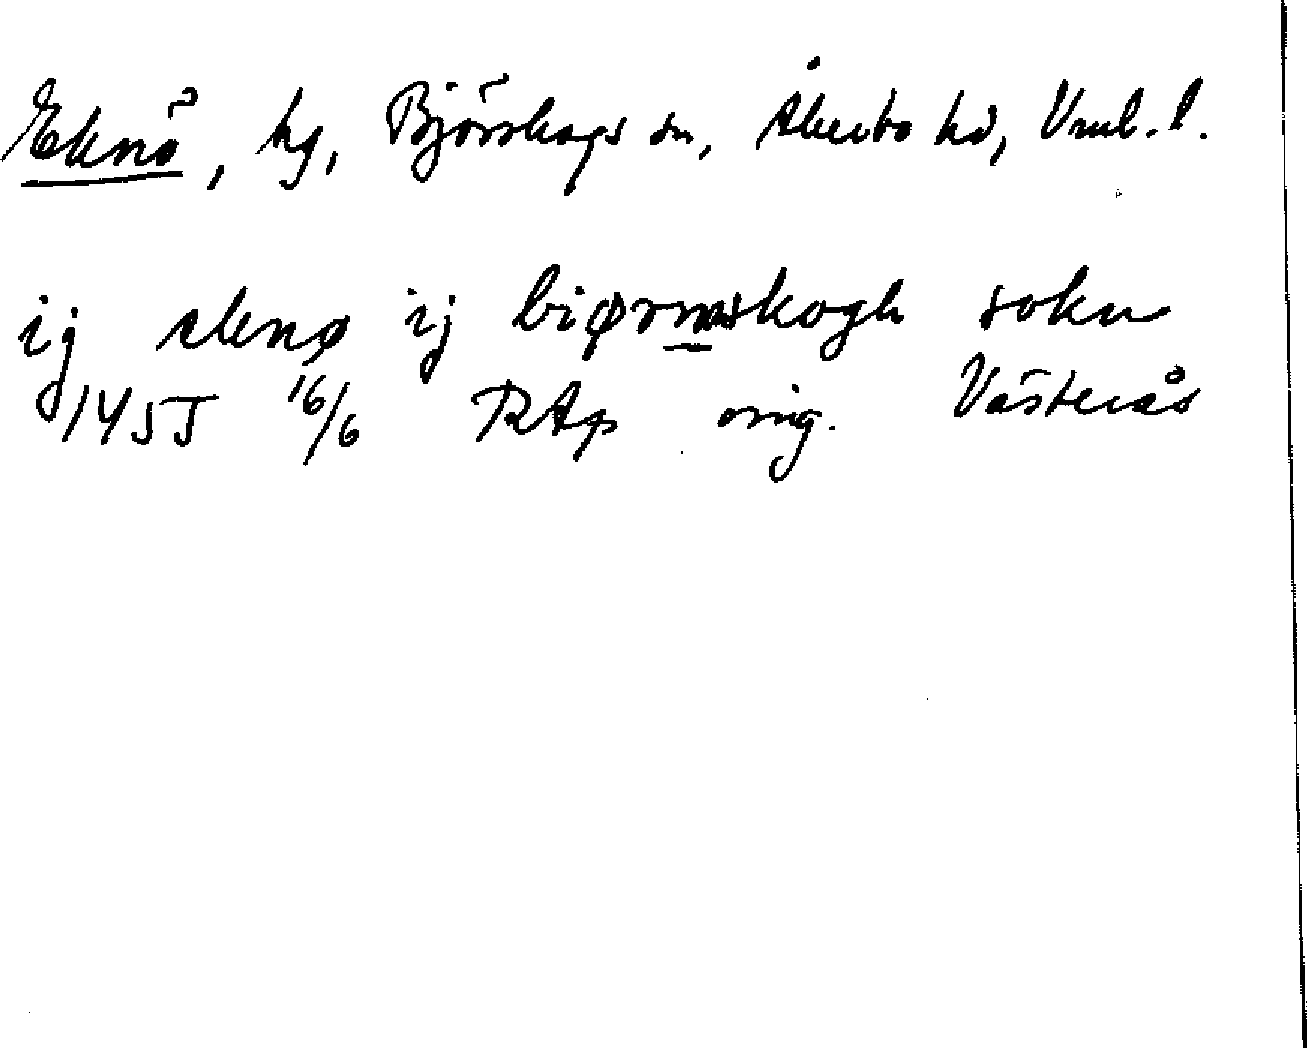 Eknö, hg, Björskogs sn, Åkerbo hd, Vml. l.
ij eknø ij biørnskogh sokn
1455 16/6 RAp orig. Västerås